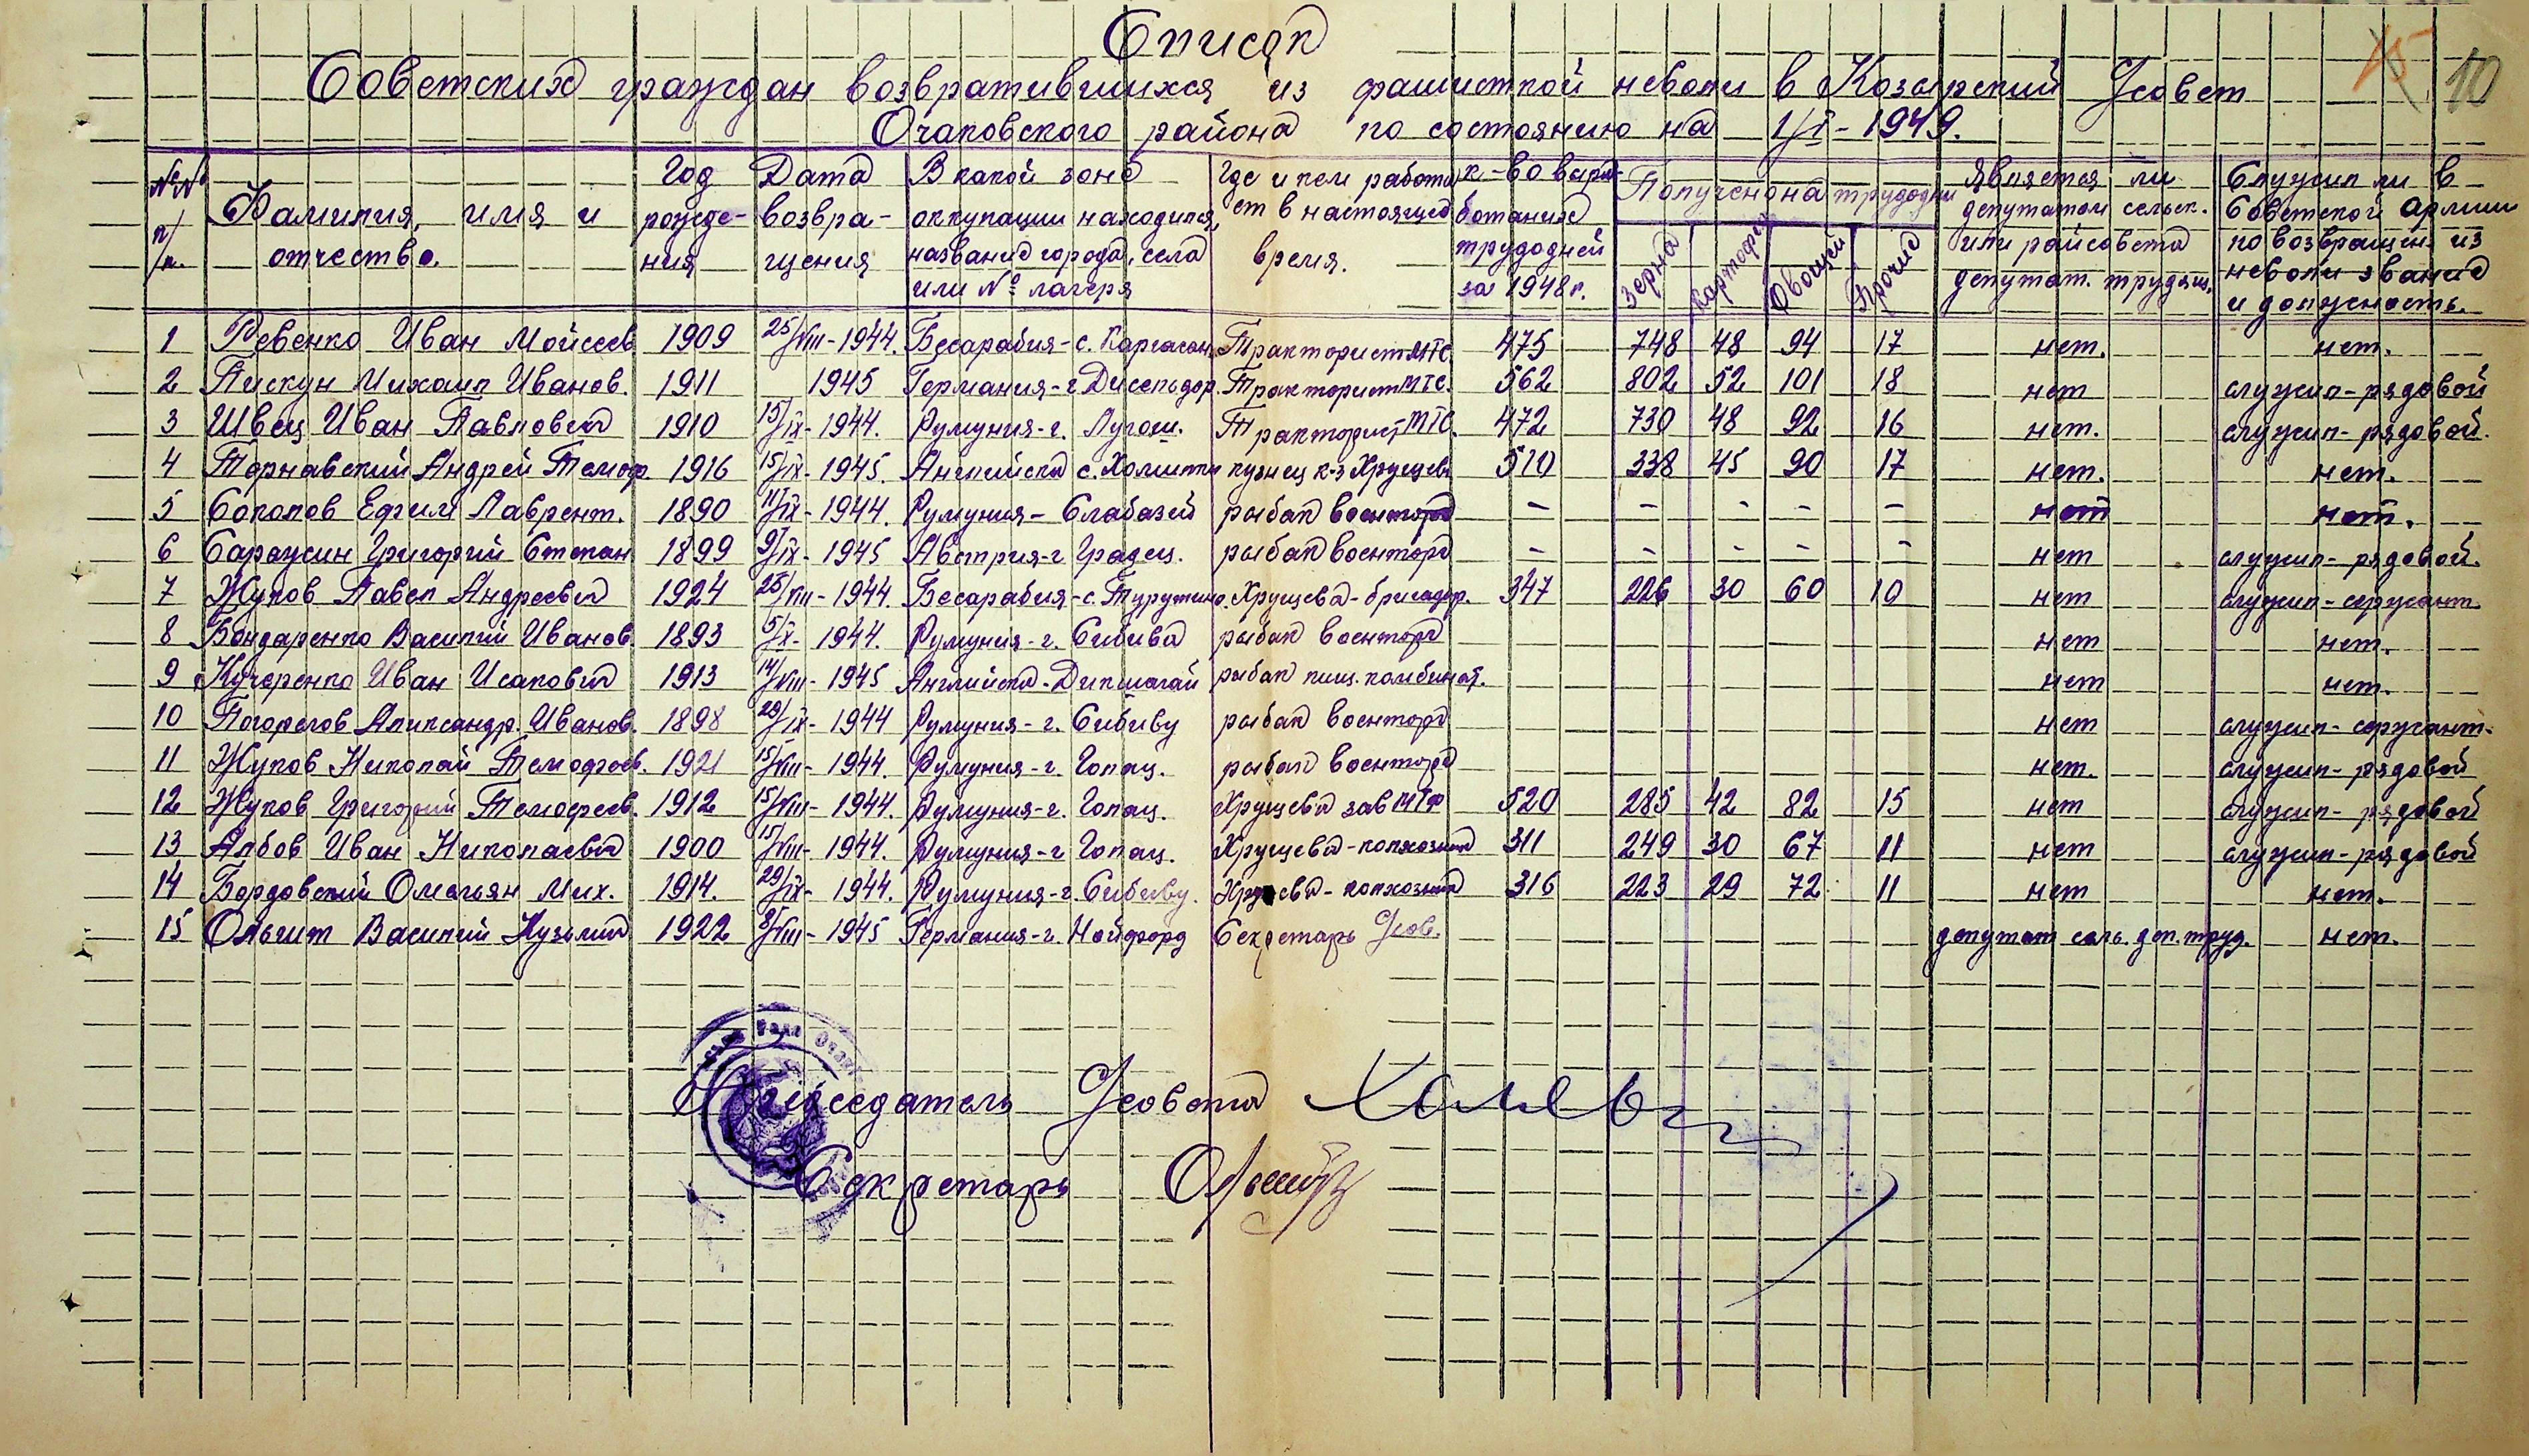 Список
Советских граждан возвратившихся из фашисткой неволи в Козырский Ѱсовет
Очаковского района по состоянию на 1/I - 1949.
№№ п/п. Фамилия, имя и отчество. Год рожде-ния Дата возвра-щения В какой зоне оккупации находился, название города, села или № лагеря Где и кем работа ет в настоящее время. к-во выра-ботаных трудодней за 1948 г. Получено на трудодни зерна картофел Овощей Прочие Является ли депутатом сельск. или райсовета депутат. трудящ. Служил ли в Советской Армии по возвращен. из неволи звание и должность.
1 Ревенко Иван Мойсеев 1909 25/VIII - 1944. Бесарабия - с. Тракторист МТС. 475 748 48 94 17 нет. нет.
2 Пискун Михаил Иванов. 1911 1945 Германия - г Дисельдор. Тракторист МТС. 562 802 52 101 18 нет служил - рядовой
3 Швец Иван Павлович 1910 15/IX - 1944. Румуния - г. Лугош. Тракторист МТС. 472 730 48 92 16 нет. служил - рядовой.
4 Тарнавский Андрей Темоф. 1916 15/IX - 1945. Английска с. кузнец к-з Хрущева 510 338 45 90 17 нет. нет.
5 Соколов Ефим Лаврент. 1890 11/IX - 1944. Румуния - Слабазей рыбак военторга - - - - - нет нет.
6 Саражин Григорий Степан 1899 9/IX - 1945 Австрия - г Градец. рыбак военторг - - - - - нет служил - рядовой.
7 Жуков Павел Андреевич 1924 25/VIII - 1944. Бесарабия - с. Турутино. Хрущева - бригадир. 347 226 30 60 10 нет служил - сержант.
8 Бондаренко Василий Иванов. 1893 5/X - 1944. Румуния - г. Сибива рыбак военторга нет нет.
9 Кучеренко Иван Исакович 1913 14/VIII - 1945 Английска - рыбак пищ. комбинат. нет нет.
10 Погорелов Александр. Иванов. 1898 29/IX - 1944 Румуния - г. Сибиву рыбак военторга нет служил - сержант.
11 Жуков Николай Темофеев. 1921 15/VIII - 1944. Румуния - г. Голац. рыбак военторга нет. служил - рядовой
12 Жуков Григорий Темофеев. 1912 15/VIII - 1944. Румуния - г. Голац. Хрущева зав МТФ 520 285 42 82 15 нет служил - рядовой
13 Албов Иван Николаевич 1900 15/VIII - 1944. Румуния - г Голац. Хрущева - колхозник 311 249 30 67 11 нет служил - рядовой
14 Бордовский Омельян Мих. 1914. 29/IX - 1944. Румуния - г. Сибиву. Хрущева - колхозник 316 223 29 72 11 нет нет.
15 Ольшит Василий Кузьмич 1922 8/VIII - 1945 Германия - г. Нойфорд Секретарь Ѱсов. депутат сель. деп. труд. нет.
Председатель Ѱсовета
Секретарь
15 10